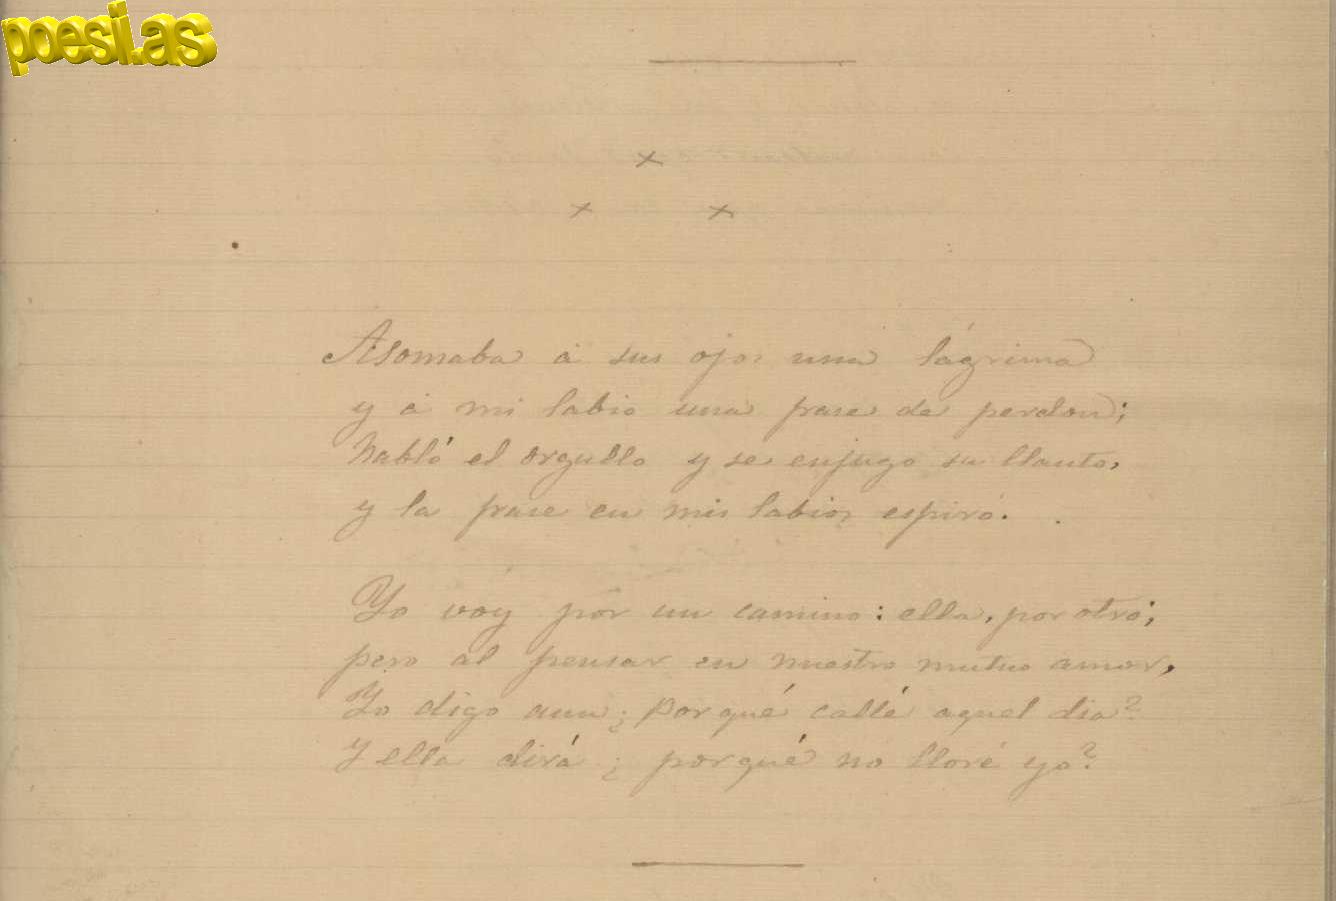 poesi.as
Asomaba á sus ojos una lágrima
y á mi labio una frase de perdon;
habló el orgullo y se enjugo su llanto,
y la frase en mis labios espiró.
Yo voy por un camino: ella, por otro;
pero al pensar en nuestro mutuo amor,
Yo digo aun ¿porqué callé aquel dia?
Y ella dirá ¿porqué no lloré yo?